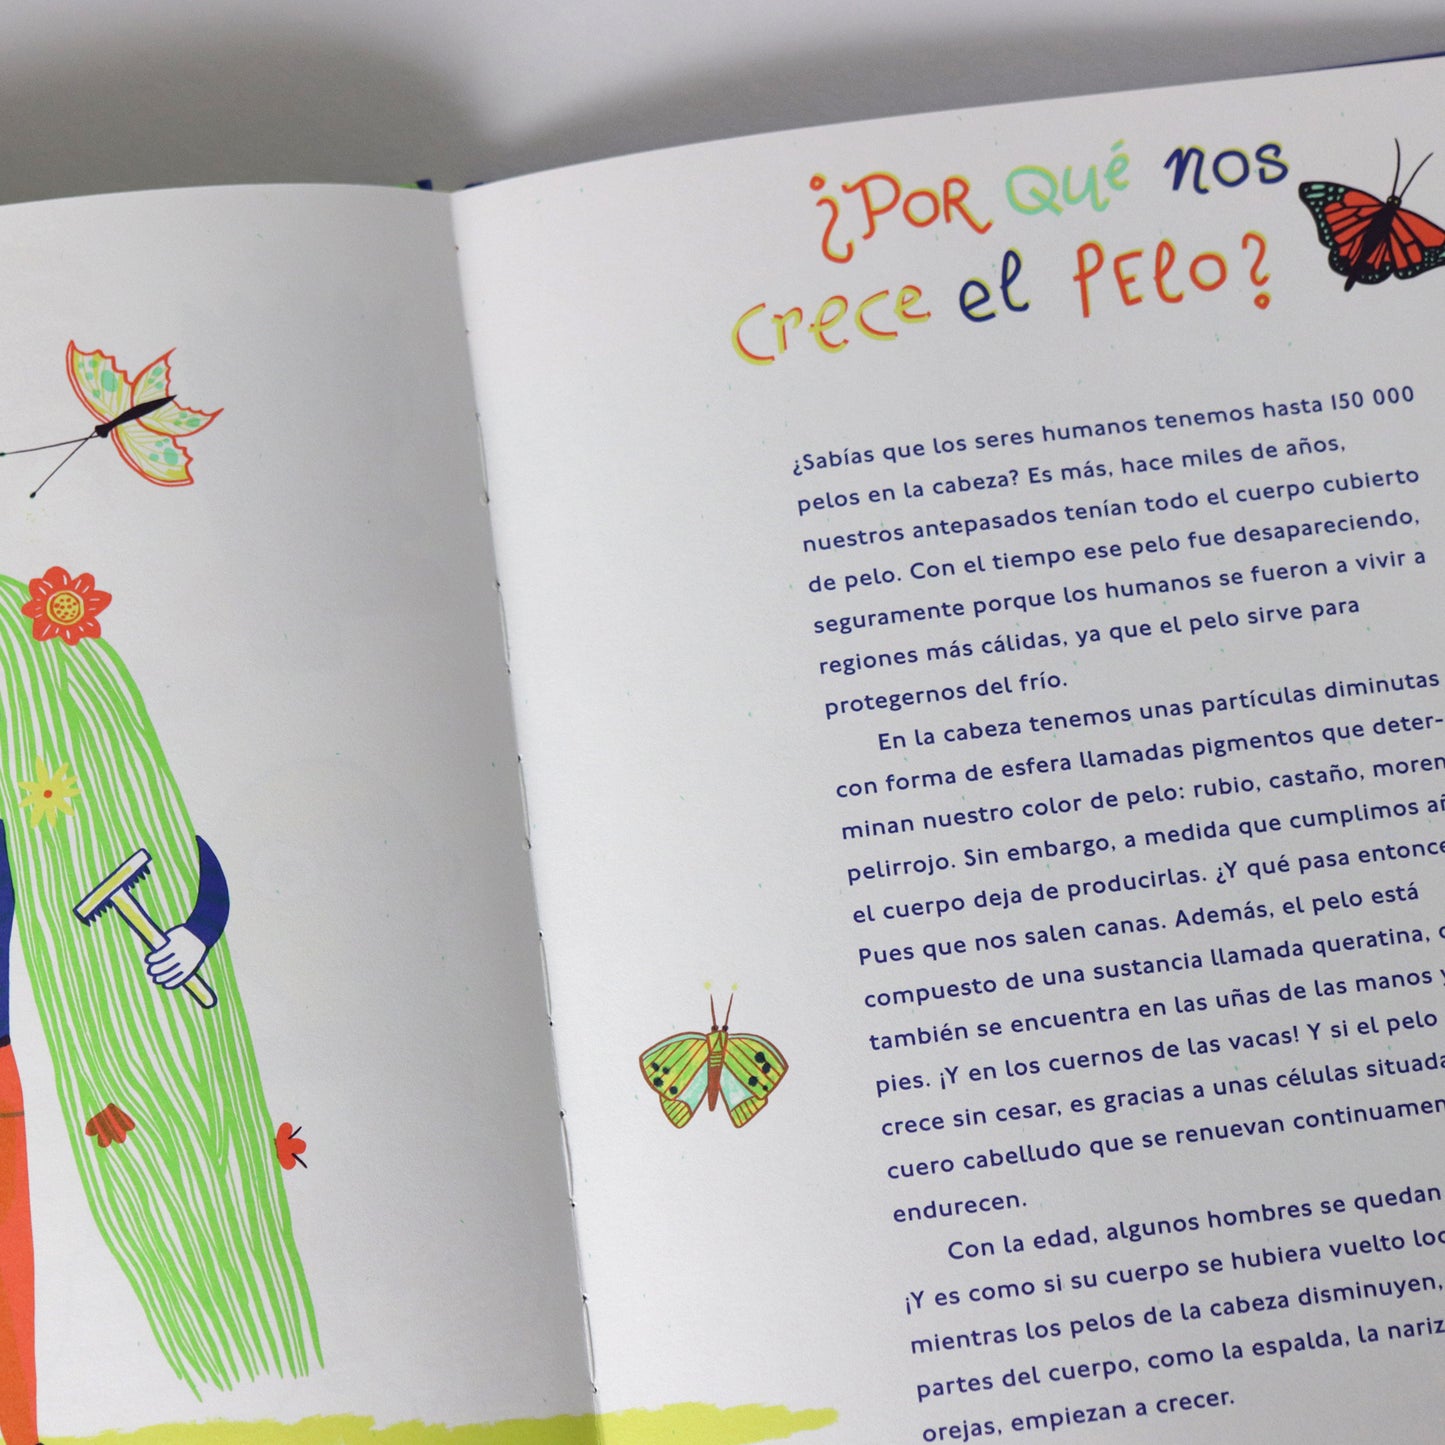 ¿POR QUÉ NOS
CRECE el PELO?
¿Sabías que los seres humanos tenemos hasta 150 000
pelos en la cabeza? Es más, hace miles de años,
nuestros antepasados tenían todo el cuerpo cubierto
de pelo. Con el tiempo ese pelo fue desapareciendo,
seguramente porque los humanos se fueron a vivir a
regiones más cálidas, ya que el pelo sirve para
protegernos del frío.
En la cabeza tenemos unas partículas diminutas
con forma de esfera llamadas pigmentos que deter-
minan nuestro color de pelo: rubio, castaño, moren
pelirrojo. Sin embargo, a medida que cumplimos
el cuerpo deja de producirlas. ¿Y qué pasa entonce
Pues que nos salen canas. Además, el pelo está
compuesto de una sustancia llamada queratina,
también se encuentra en las uñas de las manos y
pies. ¡Y en los cuernos de las vacas! Y si el pelo
crece sin cesar, es gracias a unas células situada
cuero cabelludo que se renuevan continuamen
endurecen.
Con la edad, algunos hombres se quedan
¡Y es como si su cuerpo se hubiera vuelto loc
mientras los pelos de la cabeza disminuyen,
partes del cuerpo, como la espalda, la nariz
orejas, empiezan a crecer.